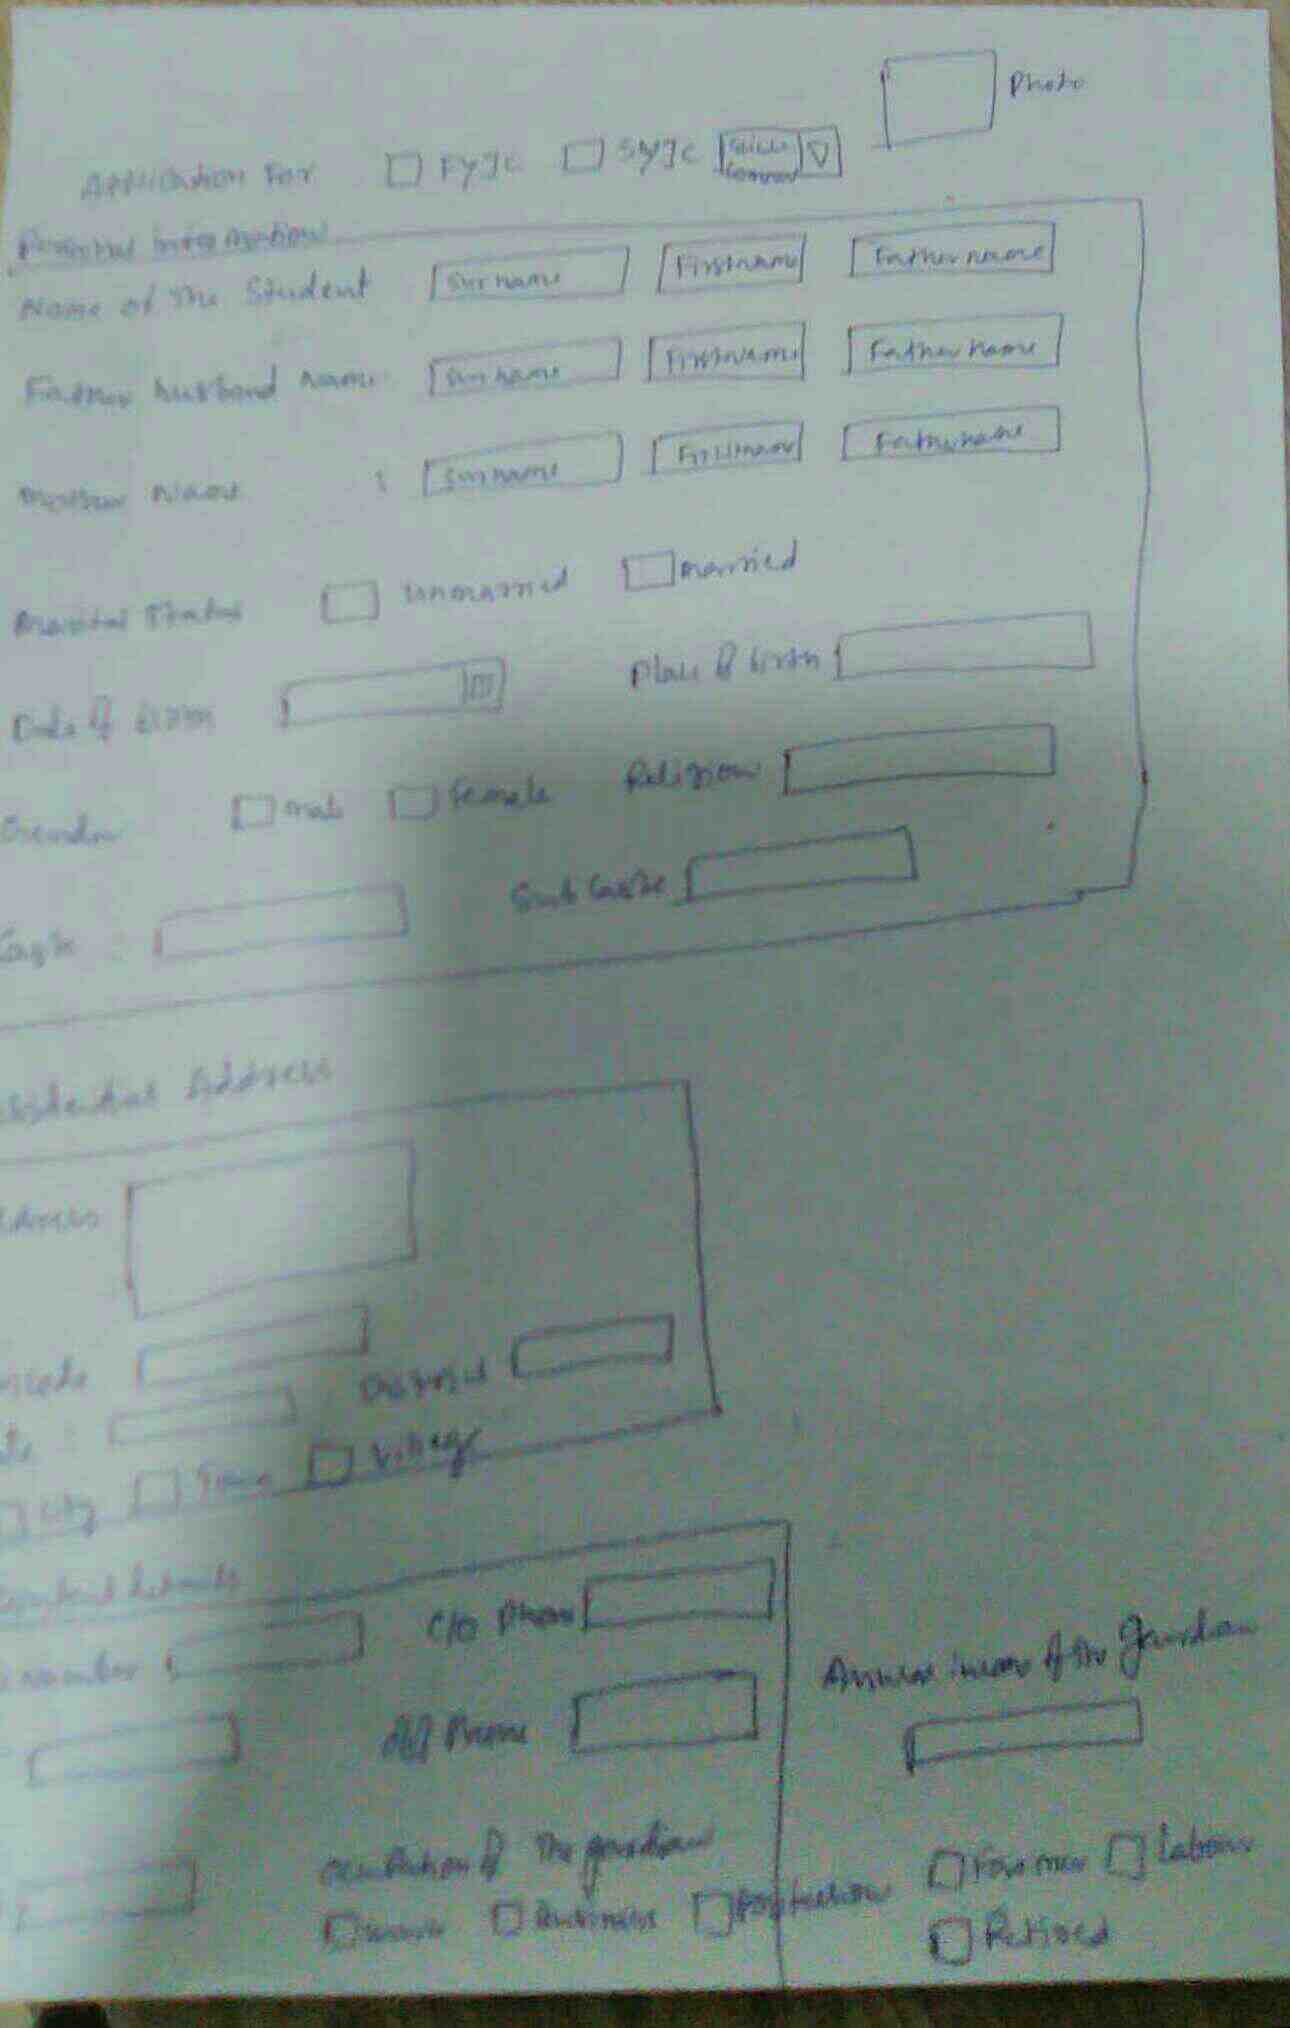 Photo
Application For FYJC SYJC
Personal information
Name of The Student Surname Firstname Father name
Father husband name Surname Firstname Father name
Mother Name : Surname Firstname Father name
Marital Status Unmarried married
Date of birth Place of birth
Gender male Female Religion
Caste : Sub Caste
Address
District
City Town Village
Contact details
number C/o Phone
Off Phone
Annual income of the guardian
occupation of The guardian
Business Profession Farmer Labour
Retired